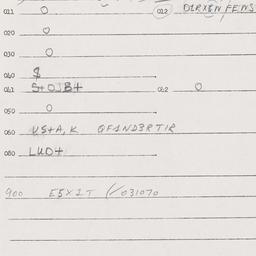 011 O 012 DIRXEN FENS
020 O
030 O
040 $
041 S+OJB+ 042 O
050 O
060 US+A, K QF1ND3RTIR
080 LUD+
900 E5X1T 031070